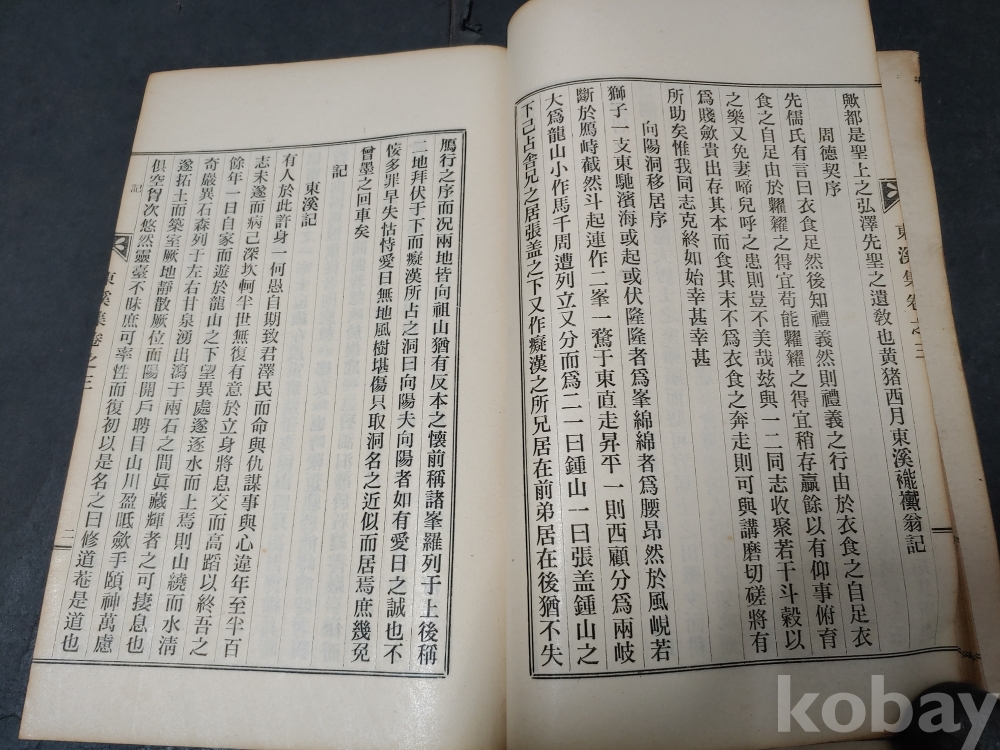 東溪集卷之三
歟都是聖上之弘澤先聖之遺敎也黄猪西月東溪襬襶翁記
周德契序
先儒氏有言曰衣食足然後知禮義然則禮義之行由於衣食之自足衣
食之自足由於糶糴之得宜苟能糶糴之得宜稍存贏餘以有仰事俯育
之樂又免妻啼兒呼之患則豈不美哉玆與一二同志收聚若干斗穀以
爲賤斂貴出存其本而食其末不爲衣食之奔走則可與講磨切磋將有
所助矣惟我同志克終如始幸甚幸甚
向陽洞移居序
獅子一支東馳濱海或起或伏隆隆者爲峯綿綿者爲腰昂然於風峴若
斷於鴈峙截然斗起連作二峯一騖于東直走昇平一則西顧分爲兩岐
大爲龍山小作馬千周遭列立又分而爲二一曰鍾山一曰張盖鍾山之
下己占舍兄之居張盖之下又作癡漢之所兄居在前弟居在後猶不失
鴈行之序而況兩地皆向祖山猶有反本之懷前稱諸峯羅列于上後稱
二地拜伏于下而癡漢所占之洞曰向陽夫向陽者如有愛日之誠也不
侫多罪早失怙恃愛日無地風樹堪傷只取洞名之近似而居焉庶幾免
曾墨之回車矣
記
東溪記
有人於此許身一何愚自期致君澤民而命與仇謀事與心違年至半百
志未遂而病己深坎軻半世無復有意於立身將息交而高蹈以終吾之
餘年一日自家而遊於龍山之下望異處遂逐水而上焉則山繞而水淸
奇嚴異石森列于左右甘泉湧出瀉于兩石之間眞藏輝者之可捿息也
遂拓土而築室厥地靜散厥位面陽開戶聘目山川盈眡斂手頤神萬慮
俱空胷次悠然靈臺不昧庶可率性而復初以是名之曰修道菴是道也
記
東溪集卷之三
二
kobay